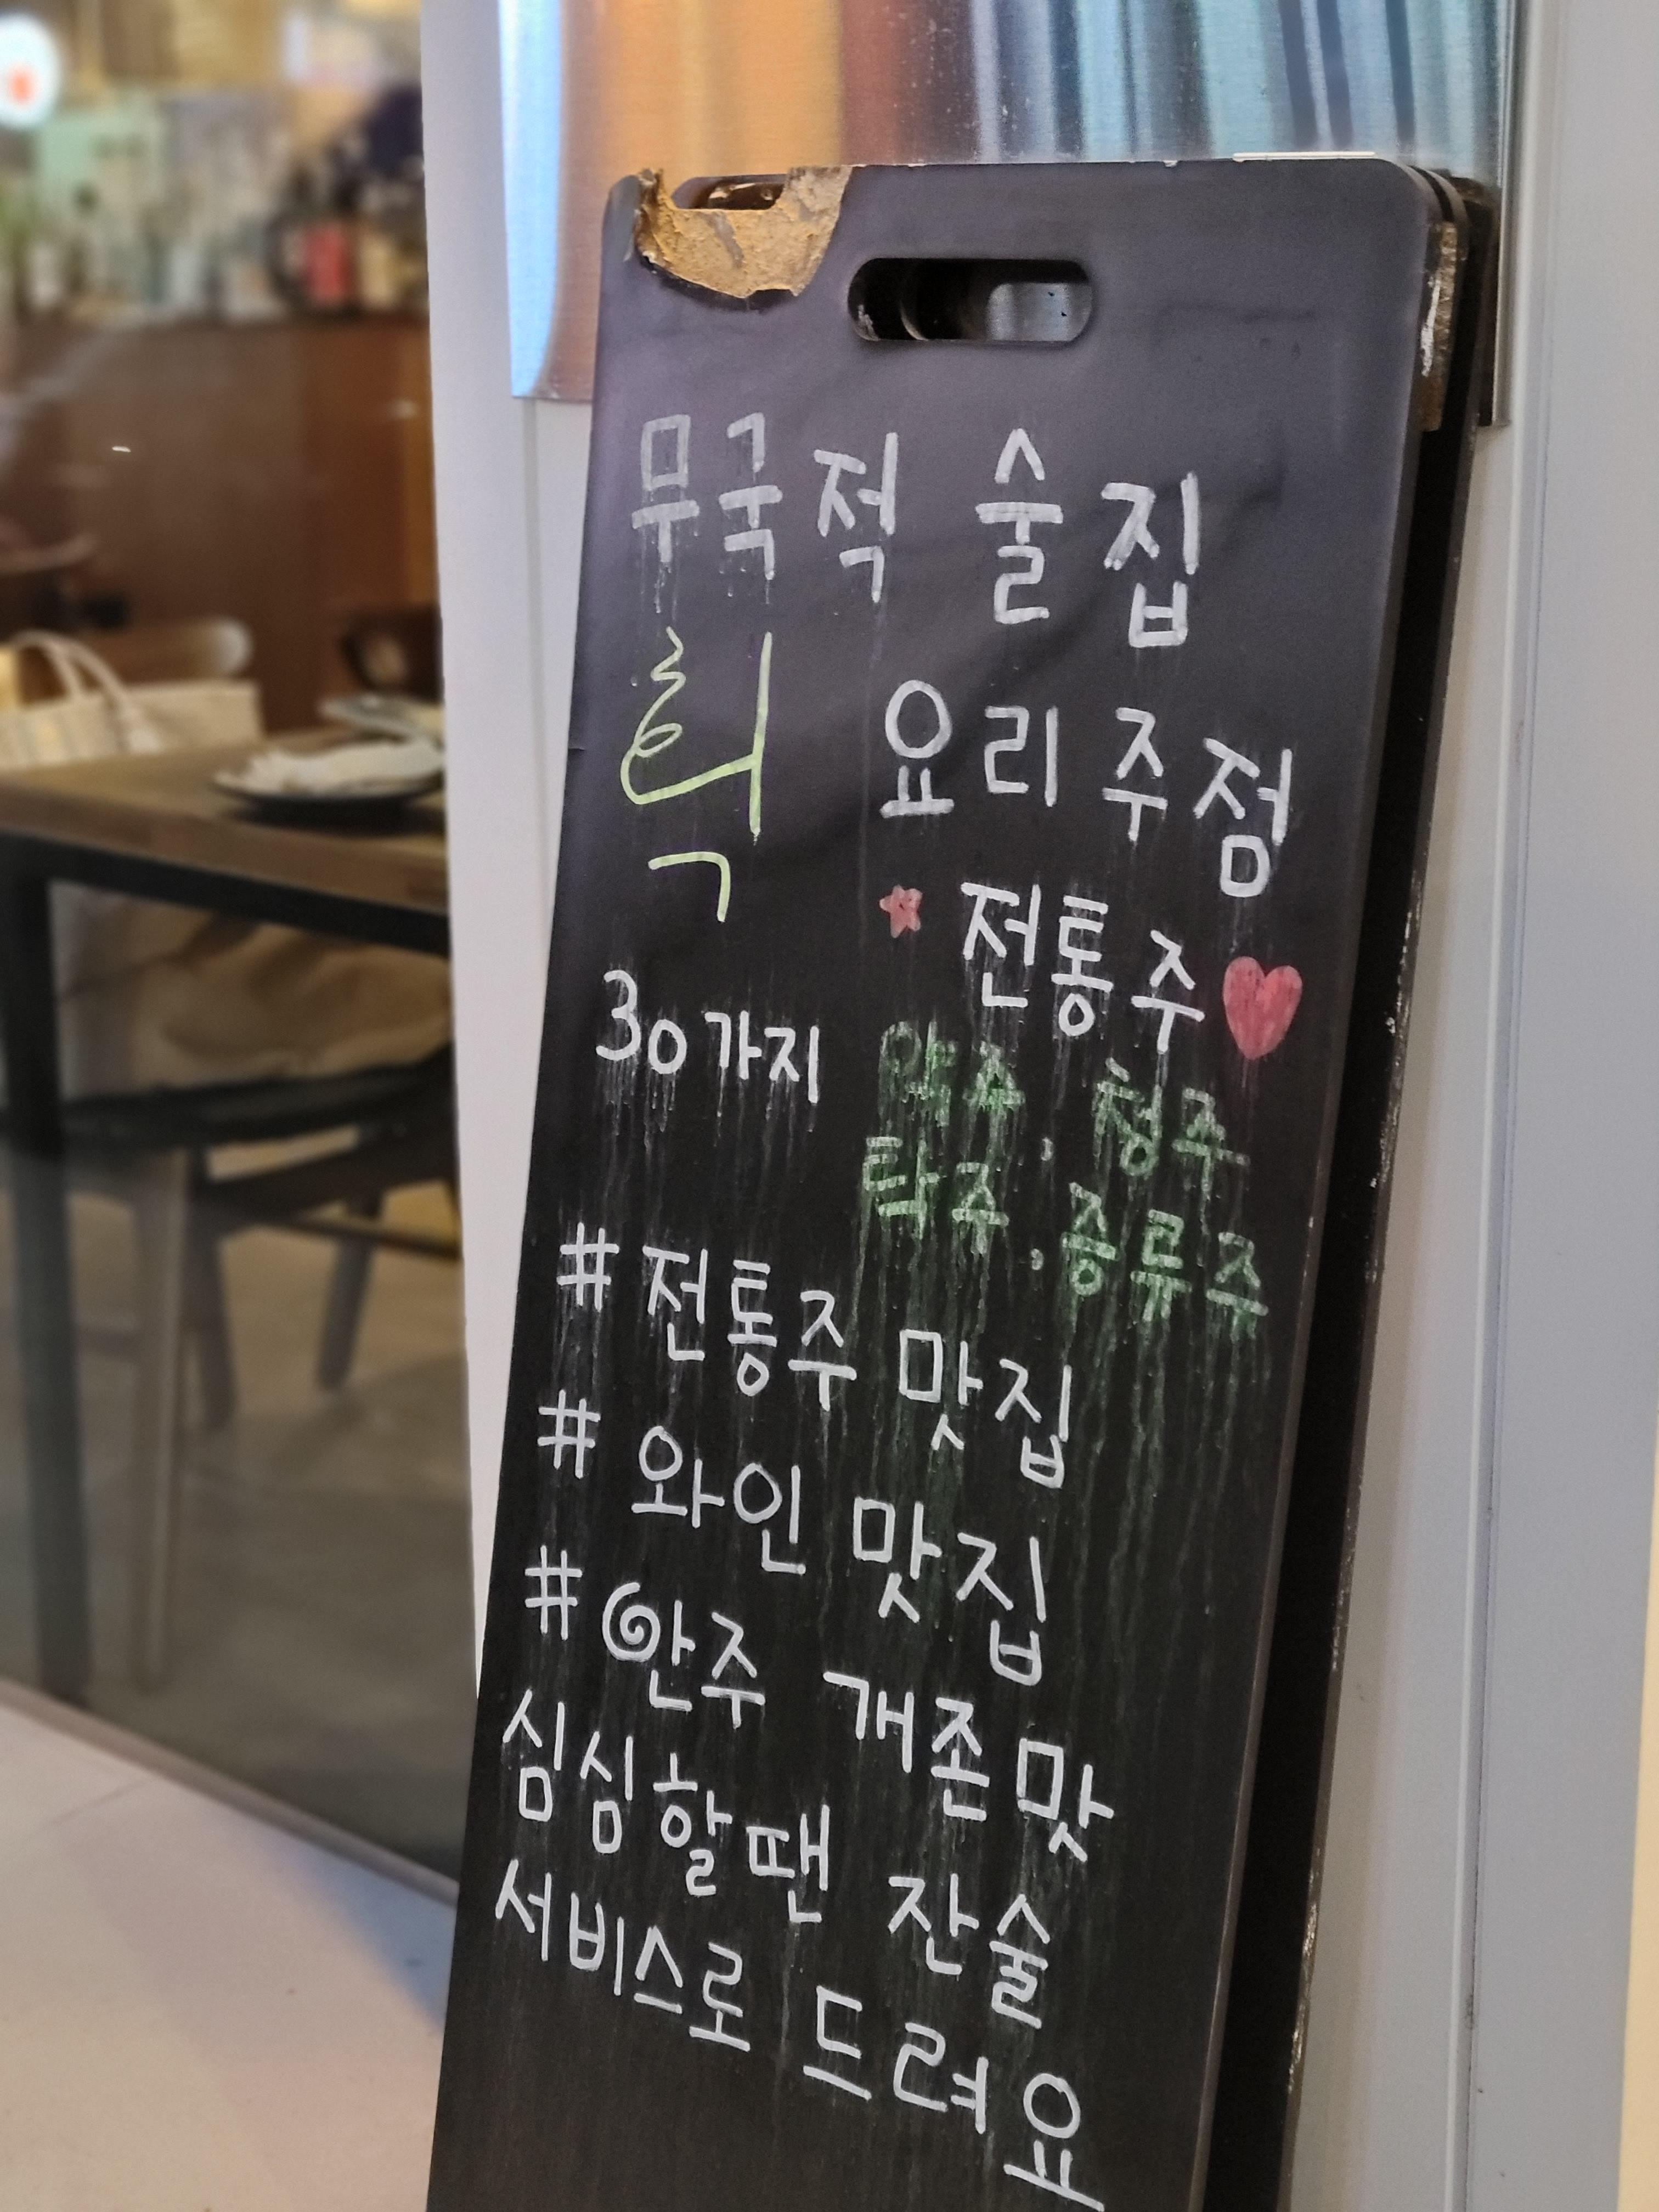 무국적 술집
틱 요리주점
전통주
30가지
약주, 청주
탁주, 증류주
# 전통주 맛집
# 와인 맛집
# 안주 개존맛
심심할땐 잔술
서비스로 드려요